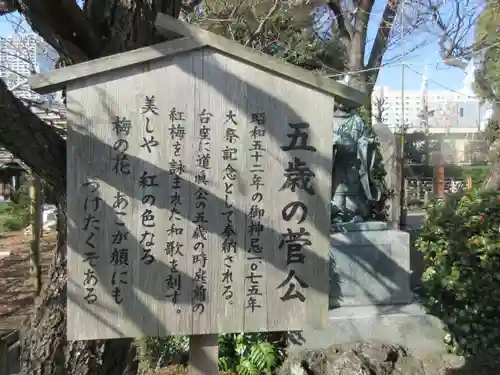 五歳の菅公
昭和五十二年の御神忌一〇七五年
大祭記念として奉納される。
台座に道真公の五歳の時庭前の
紅梅を詠まれた和歌を刻す。
美しや 紅の色なる
梅の花 あこが顔にも
つけたくぞある